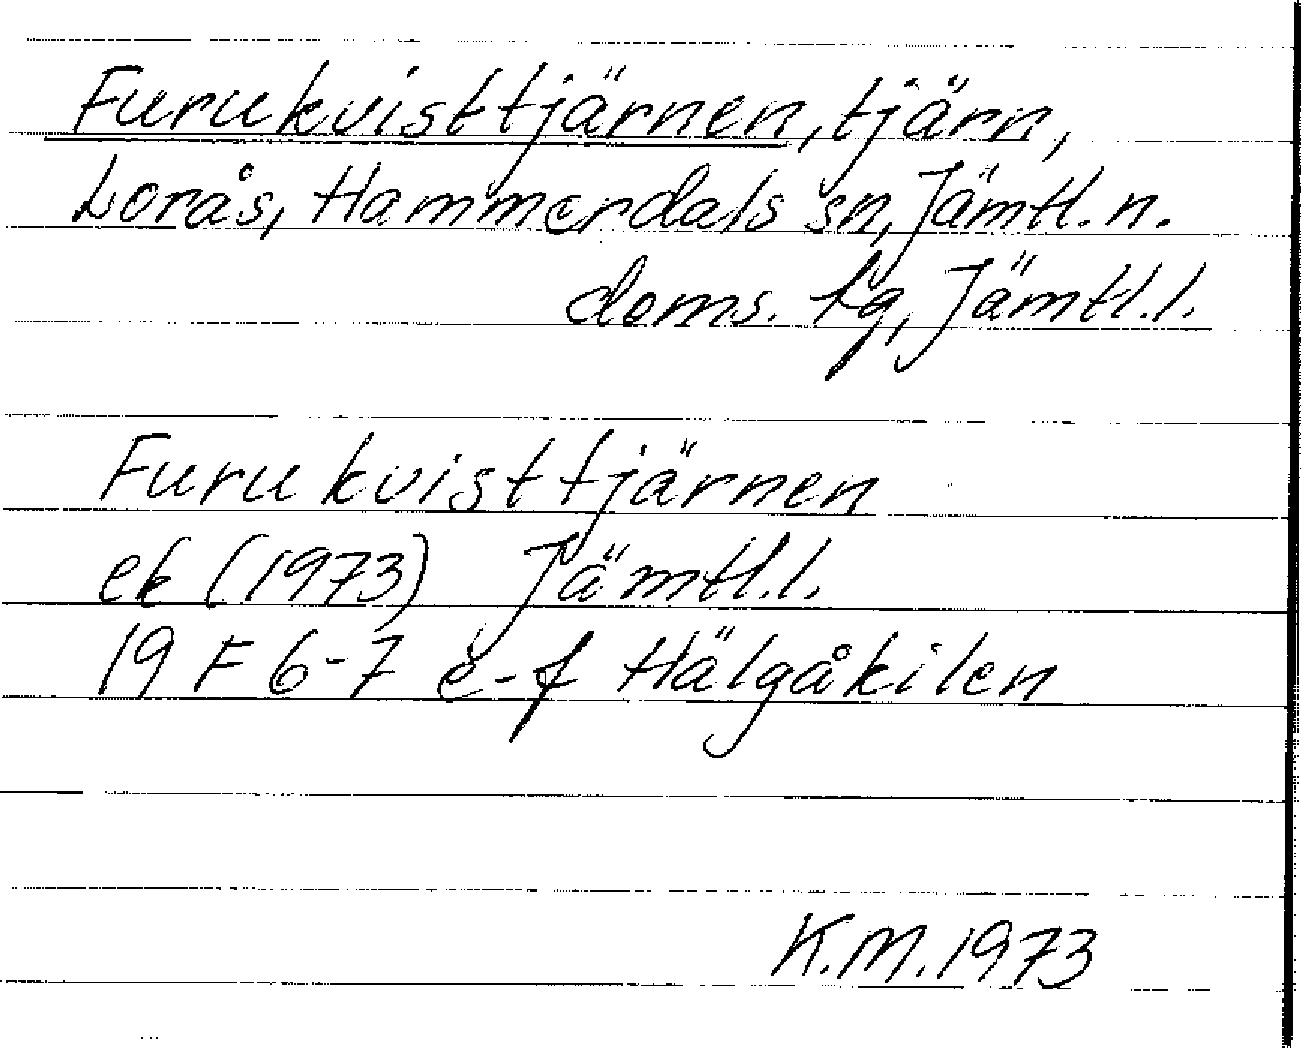 Furukvisttjärnen, tjärn,
Lorås, Hammerdals sn, Jämtl. n.
doms. tg, Jämtl. l.
Furukvisttjärnen
ek (1973) Jämtl. l.
19 F 6-7 e-f Hälgåkilen
K.M. 1973